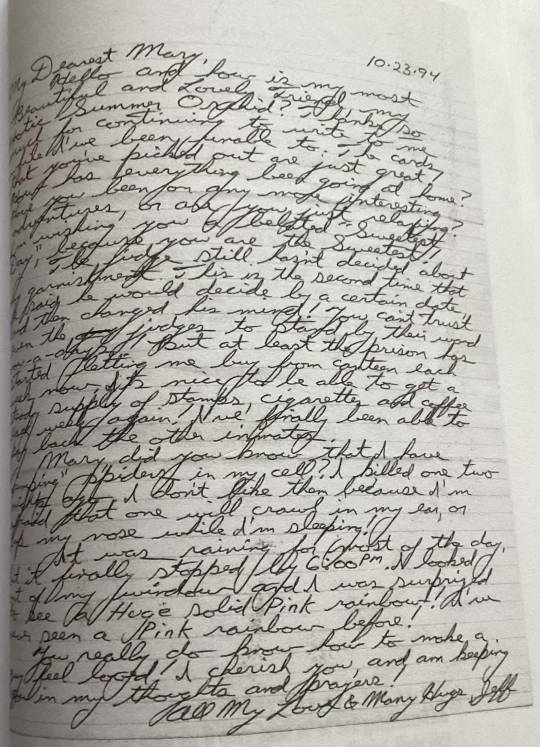 10.23.94
My Dearest Mary,
Hello and how is my most
Beautiful and Lovely Friend, my
Summer Orchid? Thanks so
much for continuing to write to me
while I've been unable to. The cards
that you've picked out are just great!
How has everything been going at home?
Have you been for any more interesting
adventures, or are you just relaxing?
I'm wishing you a belated "Sweetest
Day," because you are the Sweetest!
The judge still hasn't decided about
my garnishment. This is the second time that
he said he would decide by a certain date,
and then changed his mind! You can't trust
even the judges to stand by their word
now-a-days! But at least the prison has
started letting me buy from canteen each
week now. It's nice to be able to get a
supply of stamps, cigarettes and coffee
each week again! I've finally been able to
pay back the other inmates.
Mary did you know that I have
"jumping" spiders in my cell? I killed one two
nights ago. I don't like them because I'm
afraid that one will crawl in my ear, or
up my nose while I'm sleeping!
It was raining for most of the day,
but it finally stopped by 6:00 PM. I looked
out of my window and I was surprized
to see a Huge solid Pink rainbow! I've
never seen a Pink rainbow before!
You really do know how to make a
guy feel loved! I cherish you, and am keeping
you in my thoughts and prayers!
All My Love & Many Hugs Jeff